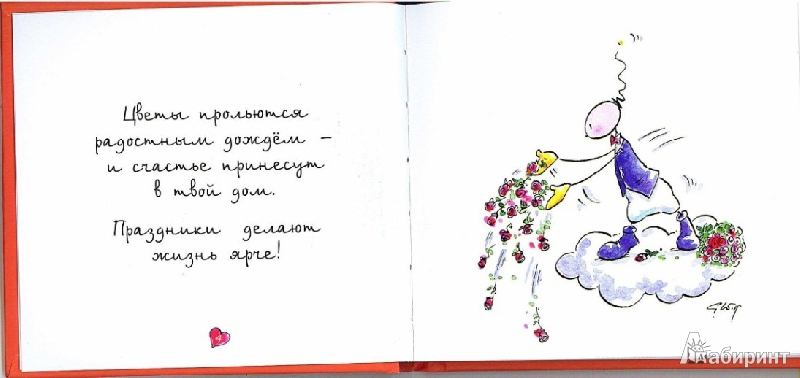 Цветы прольются
радостным дождём –
и счастье принесут
в твой дом.
Праздники делают
жизнь ярче!
Лабиринт